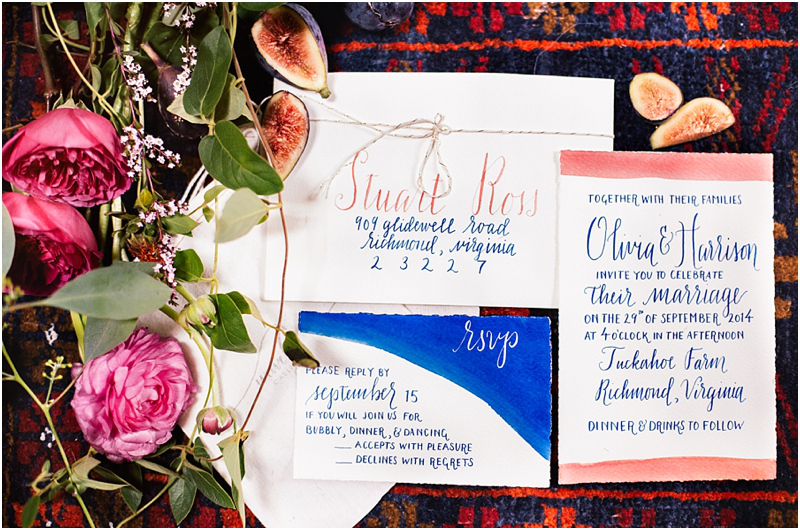 Stuart Ross
909 glidewell road
richmond, virginia
23227
rsvp
PLEASE REPLY BY
september 15
IF YOU WILL JOIN US FOR
BUBBLY, DINNER, & DANCING
__ ACCEPTS WITH PLEASURE
__ DECLINES WITH REGRETS
TOGETHER WITH THEIR FAMILIES
Olivia & Harrison
INVITE YOU TO CELEBRATE
their marriage
ON THE 29TH OF SEPTEMBER 2014
AT 4 O'CLOCK IN THE AFTERNOON
Tuckahoe Farm
Richmond, Virginia
DINNER & DRINKS TO FOLLOW